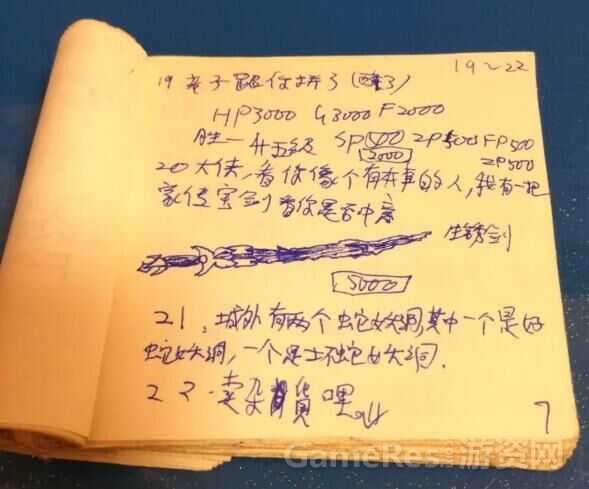 19~22
19 老子跟你拼了(醉了)
HP3000 G3000 F2000
胜一 升五级 SP500 ZP500 FP500
2000 ZP500
20 大侠,看你像个有本事的人,我有一把
家传宝剑看你是否中意
生锈剑
5000
21、城外有两个蛇妖洞,其中一个是好
蛇妖洞,一个是坏蛇妖洞.
22.卖杂货哩
7
GameRes游资网